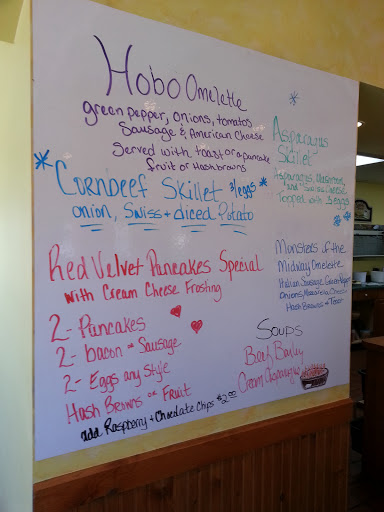 Hobo Omelette
green pepper, onions, tomatos
Sausage & American Cheese
Served with toast or a pancake
fruit or Hashbrowns
Cornbeef Skillet 3/eggs
onion, Swiss + diced Potato
Red Velvet Pancakes Special
with Cream Cheese Frosting
2- Pancakes
2- bacon or Sausage
2- Eggs any Style
Hash Browns or Fruit
add Raspberry + Chocolate Chips $2.00
Asparagus
Skillet
Asparagus,
and Swiss Cheese
Topped with 3 eggs
Monsters of the
Midway Omelette
Italian Sausage, Green Pepper
Onions, Cheese
Hash Browns + Toast
Soups
Beef Barley
Cream Asparagus